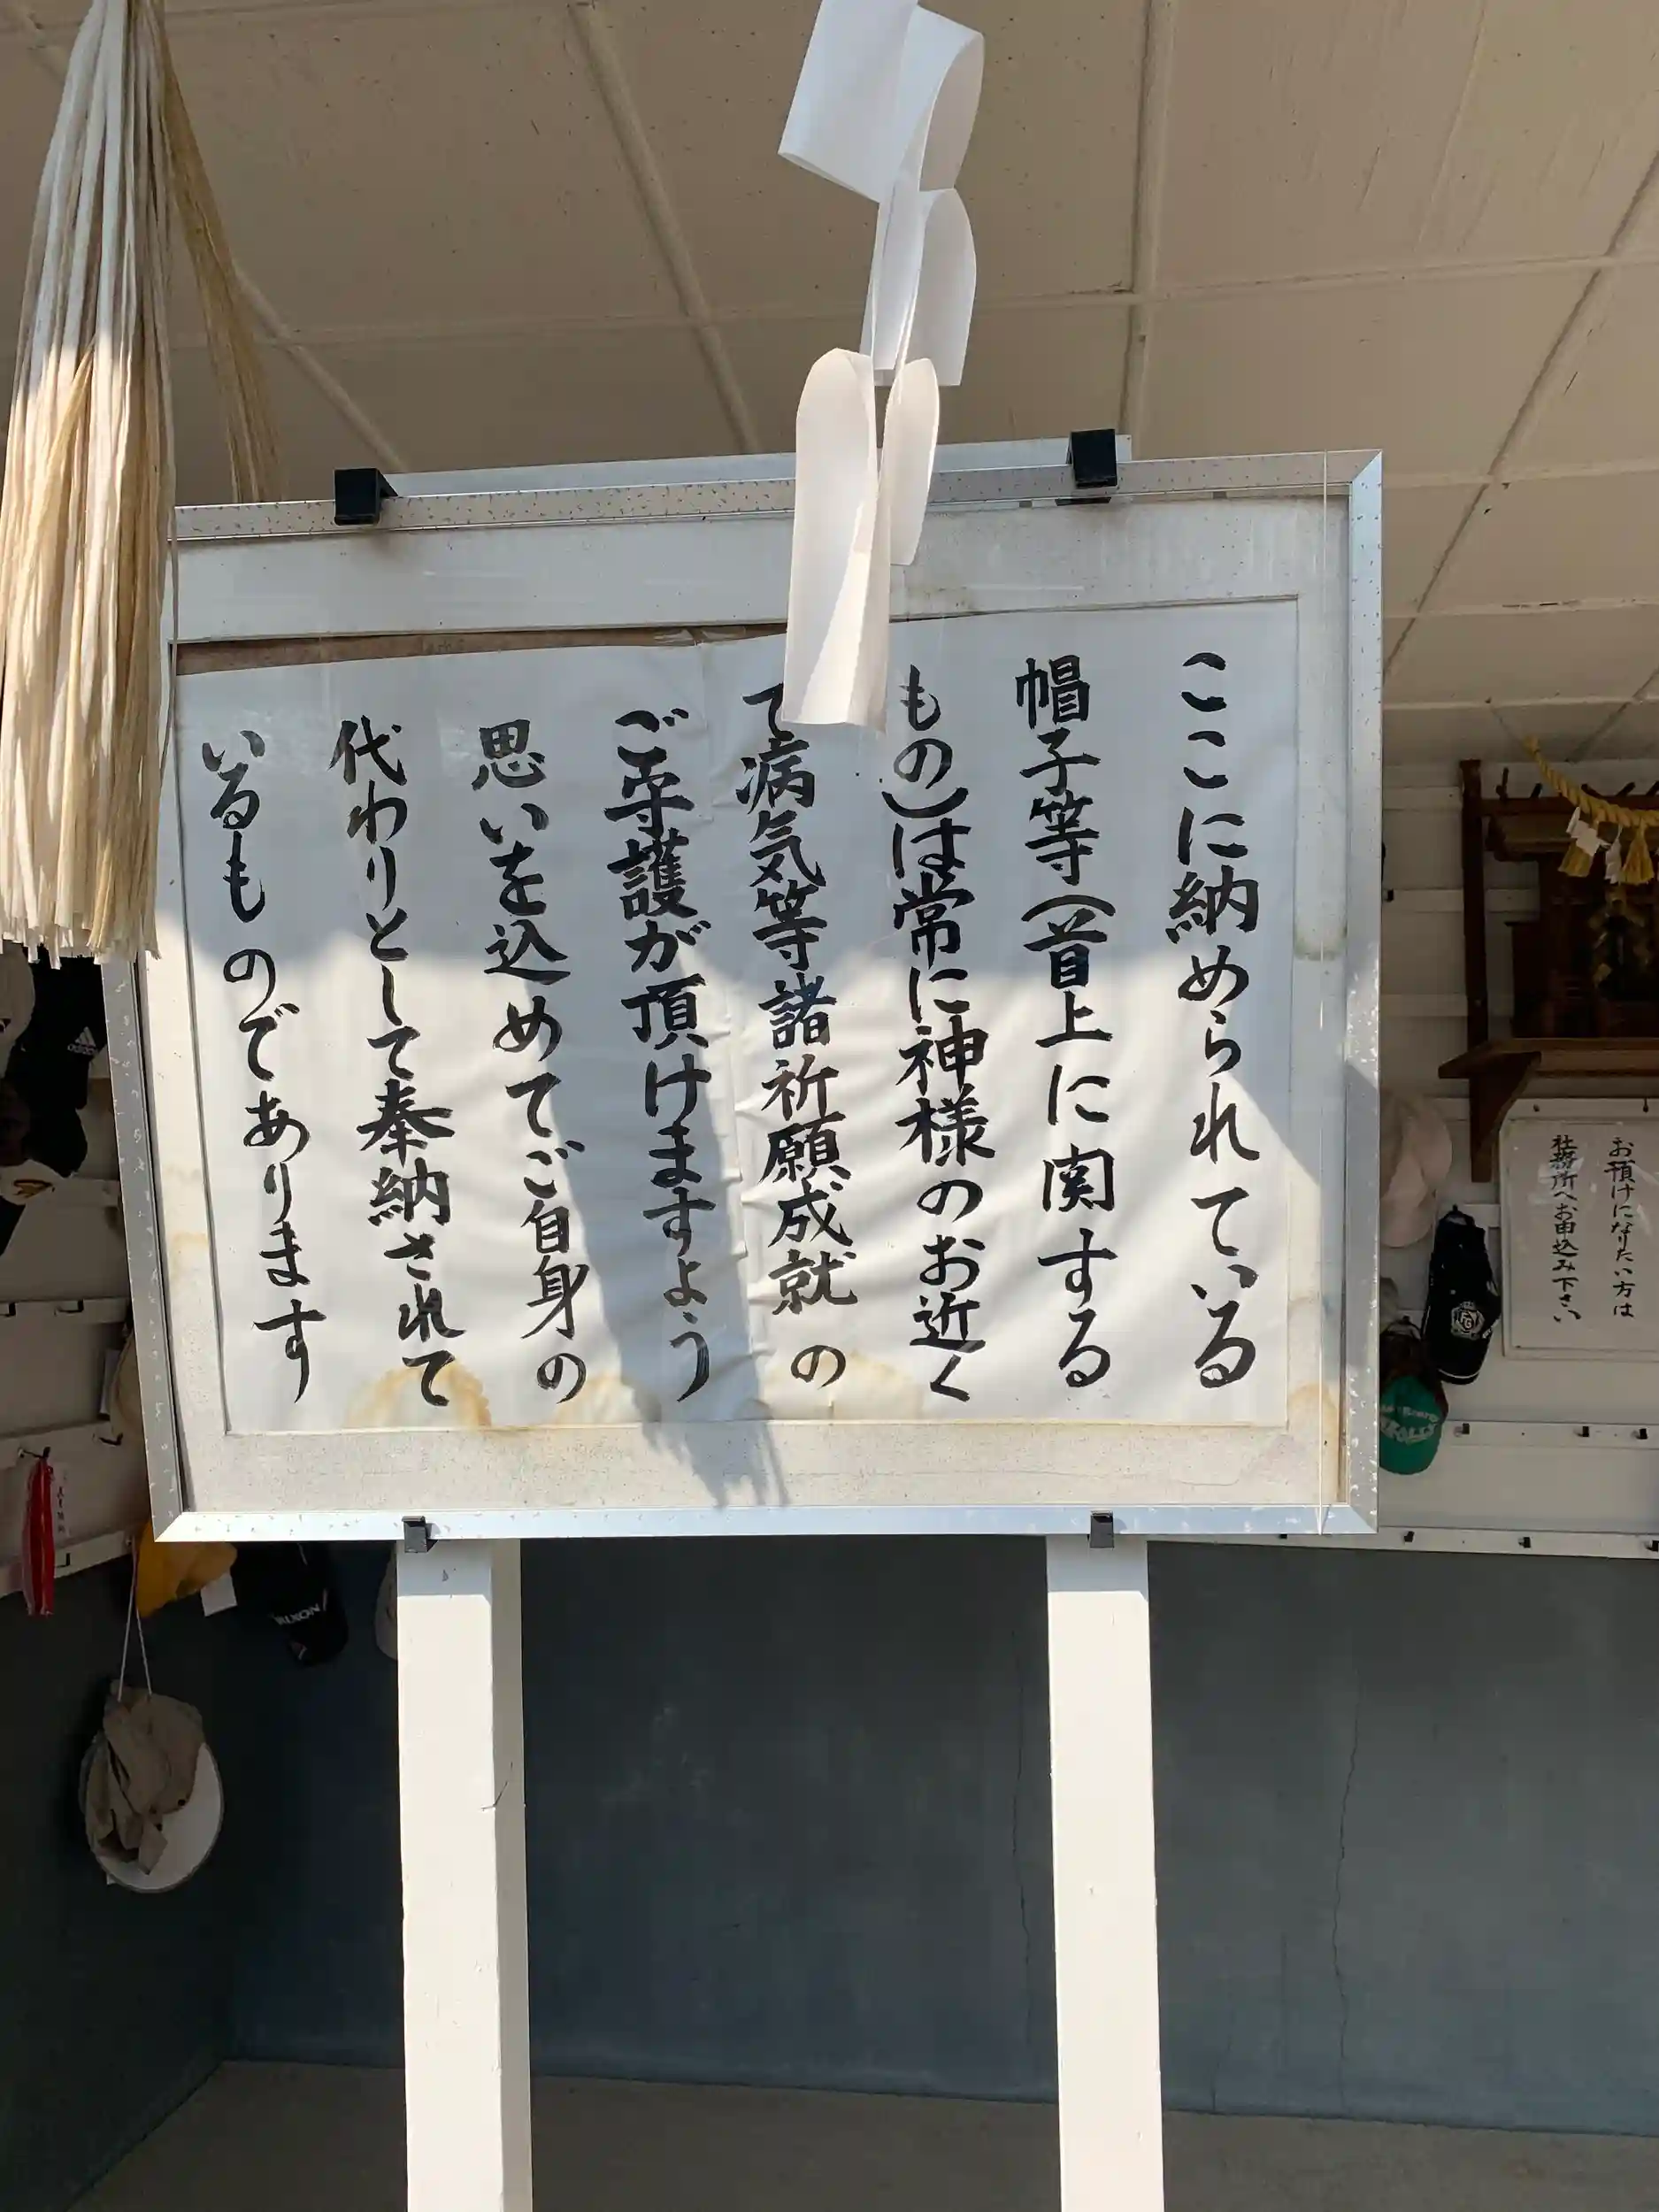 ここに納められている
帽子等(首上に関する
もの)は常に神様のお近く
て病気等諸祈願成就の
ご守護が頂けますよう
思いを込めてご自身の
代わりとして奉納されて
いるものであります
お預けになりたい方は
社務所へお申込み下さい
adidas
NIXON